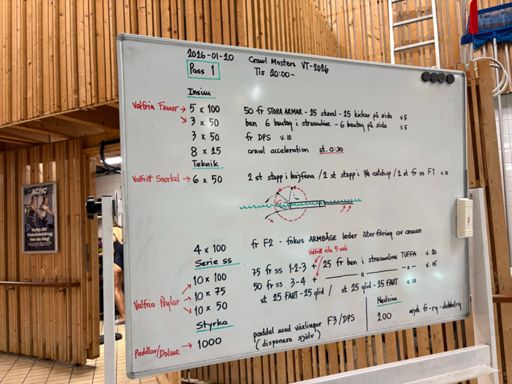 2026-01-20
Crawl Masters VT-2026
Pass 1
Tis 20:00-
Insim
Valfria Fenor → 5 x 100 50 fr STORA ARMAR - 25 skovel - 25 kickar på sida v.5
3 x 50 ben 6 bentag i streamline - 6 bentag på sida v.5
3 x 50 fr DPS v.10
8 x 25 crawl acceleration st. 0:30
Teknik
Valfritt Snorkel → 6 x 50 2 st stopp i höjfena / 2 st stopp i låg catchup / 2 st fr ss F1 v
4 x 100 fr F2 - fokus ARMBÅGE leder återföring av armen
Serie ss
Valfritt vila 5 sek
10 x 100 75 fr ss 1-2-3 + 25 fr ben i streamline TUFFA v. 20
10 x 75 50 fr ss 3-4 + — " — v. 15
Valfria Paylar → 10 x 50 st 25 FART - 25 glid / st 25 glid - 25 FART v. 10
Styrka
Paddlar/Dolme → 1000 paddel med växlingar F3/DPS
(disponera själv)
Nedsim
200 mjuk fr-ry-dubbelry
ACTIC